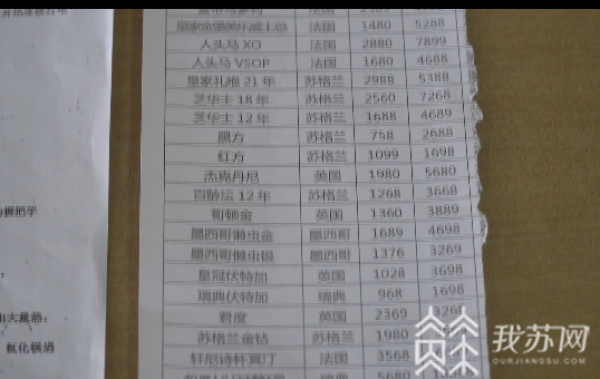 皇家金堡美乐威士忌 法国 1480 5288
人头马 XO 法国 2880 7899
人头马 VSOP 法国 1680 4688
皇家礼炮 21 年 苏格兰 2988 5388
芝华士 18 年 苏格兰 2560 7268
芝华士 12 年 苏格兰 1688 4689
黑方 苏格兰 758 2688
红方 苏格兰 1099 1698
杰克丹尼 美国 1980 5680
百龄坛 12 年 苏格兰 1268 3668
哥顿金 英国 1360 3889
墨西哥懒虫金 墨西哥 1689 4698
墨西哥懒虫银 墨西哥 1376 3269
皇冠伏特加 英国 1028 3698
瑞典伏特加 瑞典 968 1698
君度 英国 2369 3268
苏格兰金钻 苏格兰 1980
轩尼诗杯莫汀 法国 3568
瑞典 5680
为握把手
氧化镁遇
我苏网
OURJIANGSU.COM